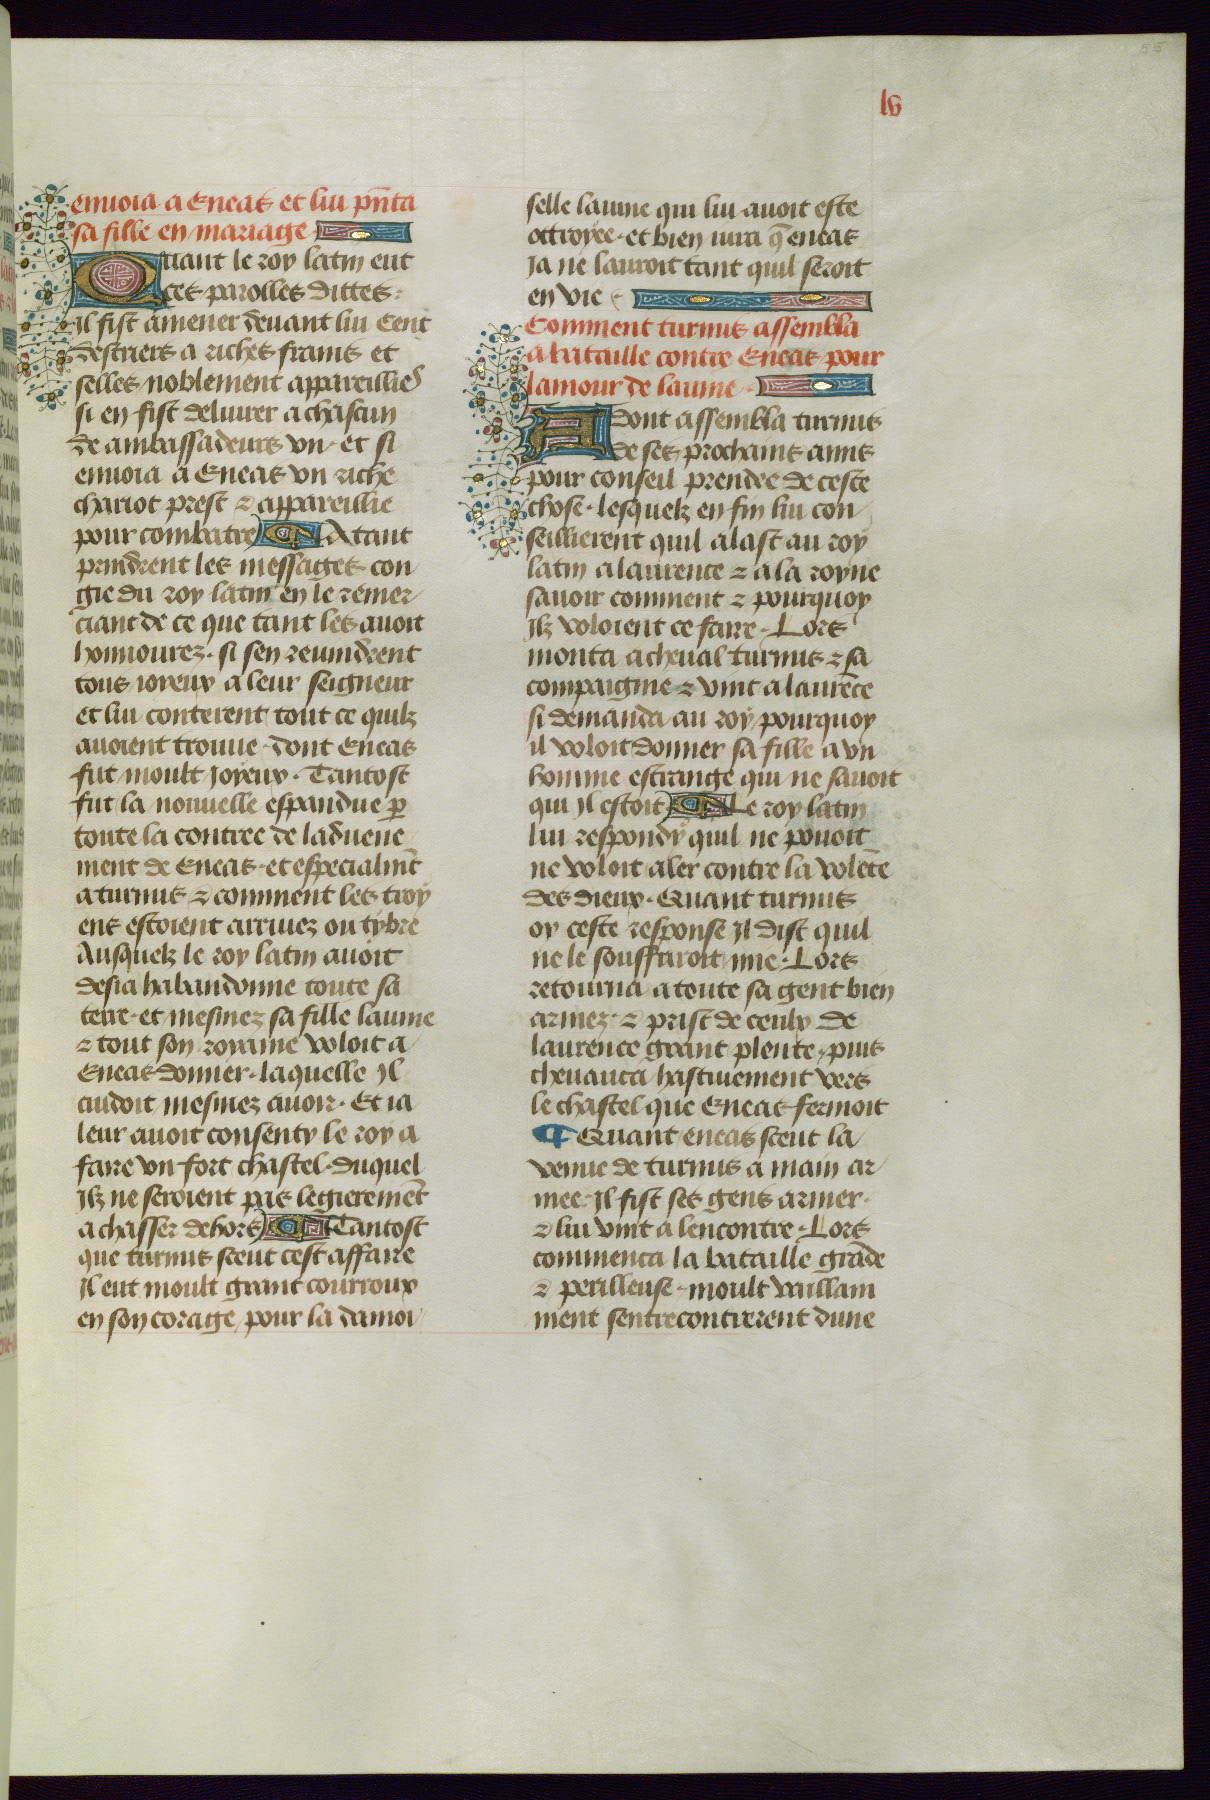 55
lv
enuoia a Eneas et lui pñta
sa fille en mariage
Quant le roy latin eut
ces parolles dittes.
Il fist amener deuant lui Cent
destriers a riches frains et
selles noblement appareillies
si en fist deliurer a chascun
de ambassadeurs vn. et si
enuoia a Eneas vn riche
chariot prest ⁊ appareillie
pour combatre ¶ Atant
prindrent les messages con
gie du roy latin en le remer
ciant de ce que tant les auoit
honnourez. si sen reuindrent
tous ioyeux a leur seigneur
et lui conterent tout ce quilz
auoient trouue. dont Eneas
fut moult Joyeux. Tantost
fut la nouuelle espandue ꝑ
toute la contree de laduene
ment de Eneas. et especialmēt
a turnus ⁊ comment les troy
ens estoient arriuez ou tybre
Ausquelz le roy latin auoit
desia habandonne toute sa
terre. et mesmez sa fille lauine
⁊ tout son royaine voloit a
Eneas donner. laquelle Il
cuidoit mesmez auoir. Et ia
leur auoit consenty le roy a
faire vn fort chastel. duquel
Ilz ne seroient pas legieremēt
a chasser dehors ¶ Tantost
que turnus sceut cest affaire
Il eut moult grant courroux
en son corage pour la damoi
selle lauine qui lui auoit este
ottroyee. et bien iura q̄ eneas
Ja ne lauroit tant quil seroit
en vie
Comment turnus assembla
a bataille contre Eneas pour
lamour de lauine.
Adont assembla turnus
de ses prochains amis
pour conseil prendre de ceste
chose. lesquelz en fin lui con
seillierent quil alast au roy
latin a laurence ⁊ a la royne
sauoir comment ⁊ pourquoy
Ilz voloient ce faire. Lors
monta a cheual turnus ⁊ sa
compaignie ⁊ vint a laurēce
si demanda au roy pourquoy
il voloit donner sa fille a vn
homme estrange qui ne sauoit
qui Il estoit ¶ Le roy latin
lui respondy quil ne pouoit
ne voloit aler contre la volēte
des dieux. Quant turnus
oy ceste response Il dist quil
ne le souffriroit mie. Lors
retourna a toute sa gent bien
armez. ⁊ prist de ceulx de
laurence grant plente. puis
cheuauca hastiuement vers
le chastel que Eneas fermoit
¶ Quant eneas sceut la
venue de turnus a main ar
mee. Il fist ses gens armer.
⁊ lui vint a lencontre. Lors
commenca la bataille grāde
⁊ perilleuse. moult vaillam
ment sentrecontrerent dune